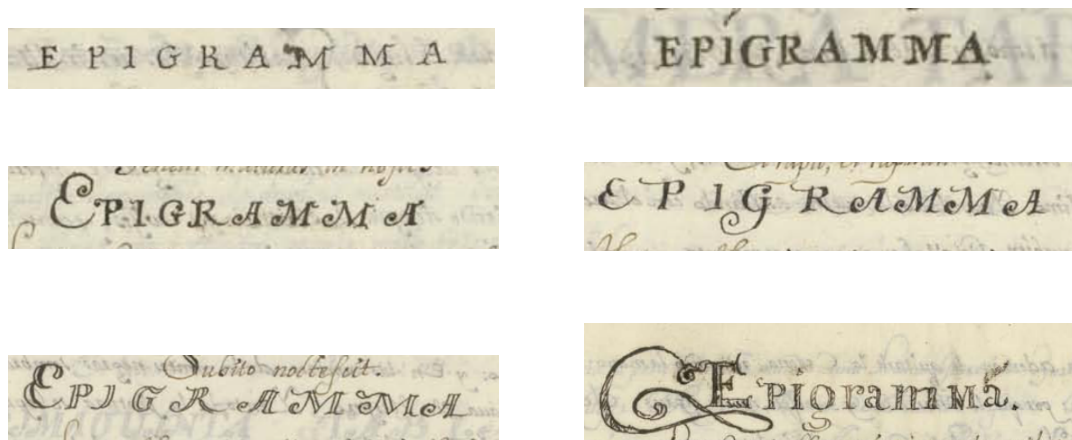 EPIGRAMMA
EPIGRAMMA
EPIGRAMMA
EPIGRAMMA
Subito noctescit.
EPIGRAMMA
Epigramma.